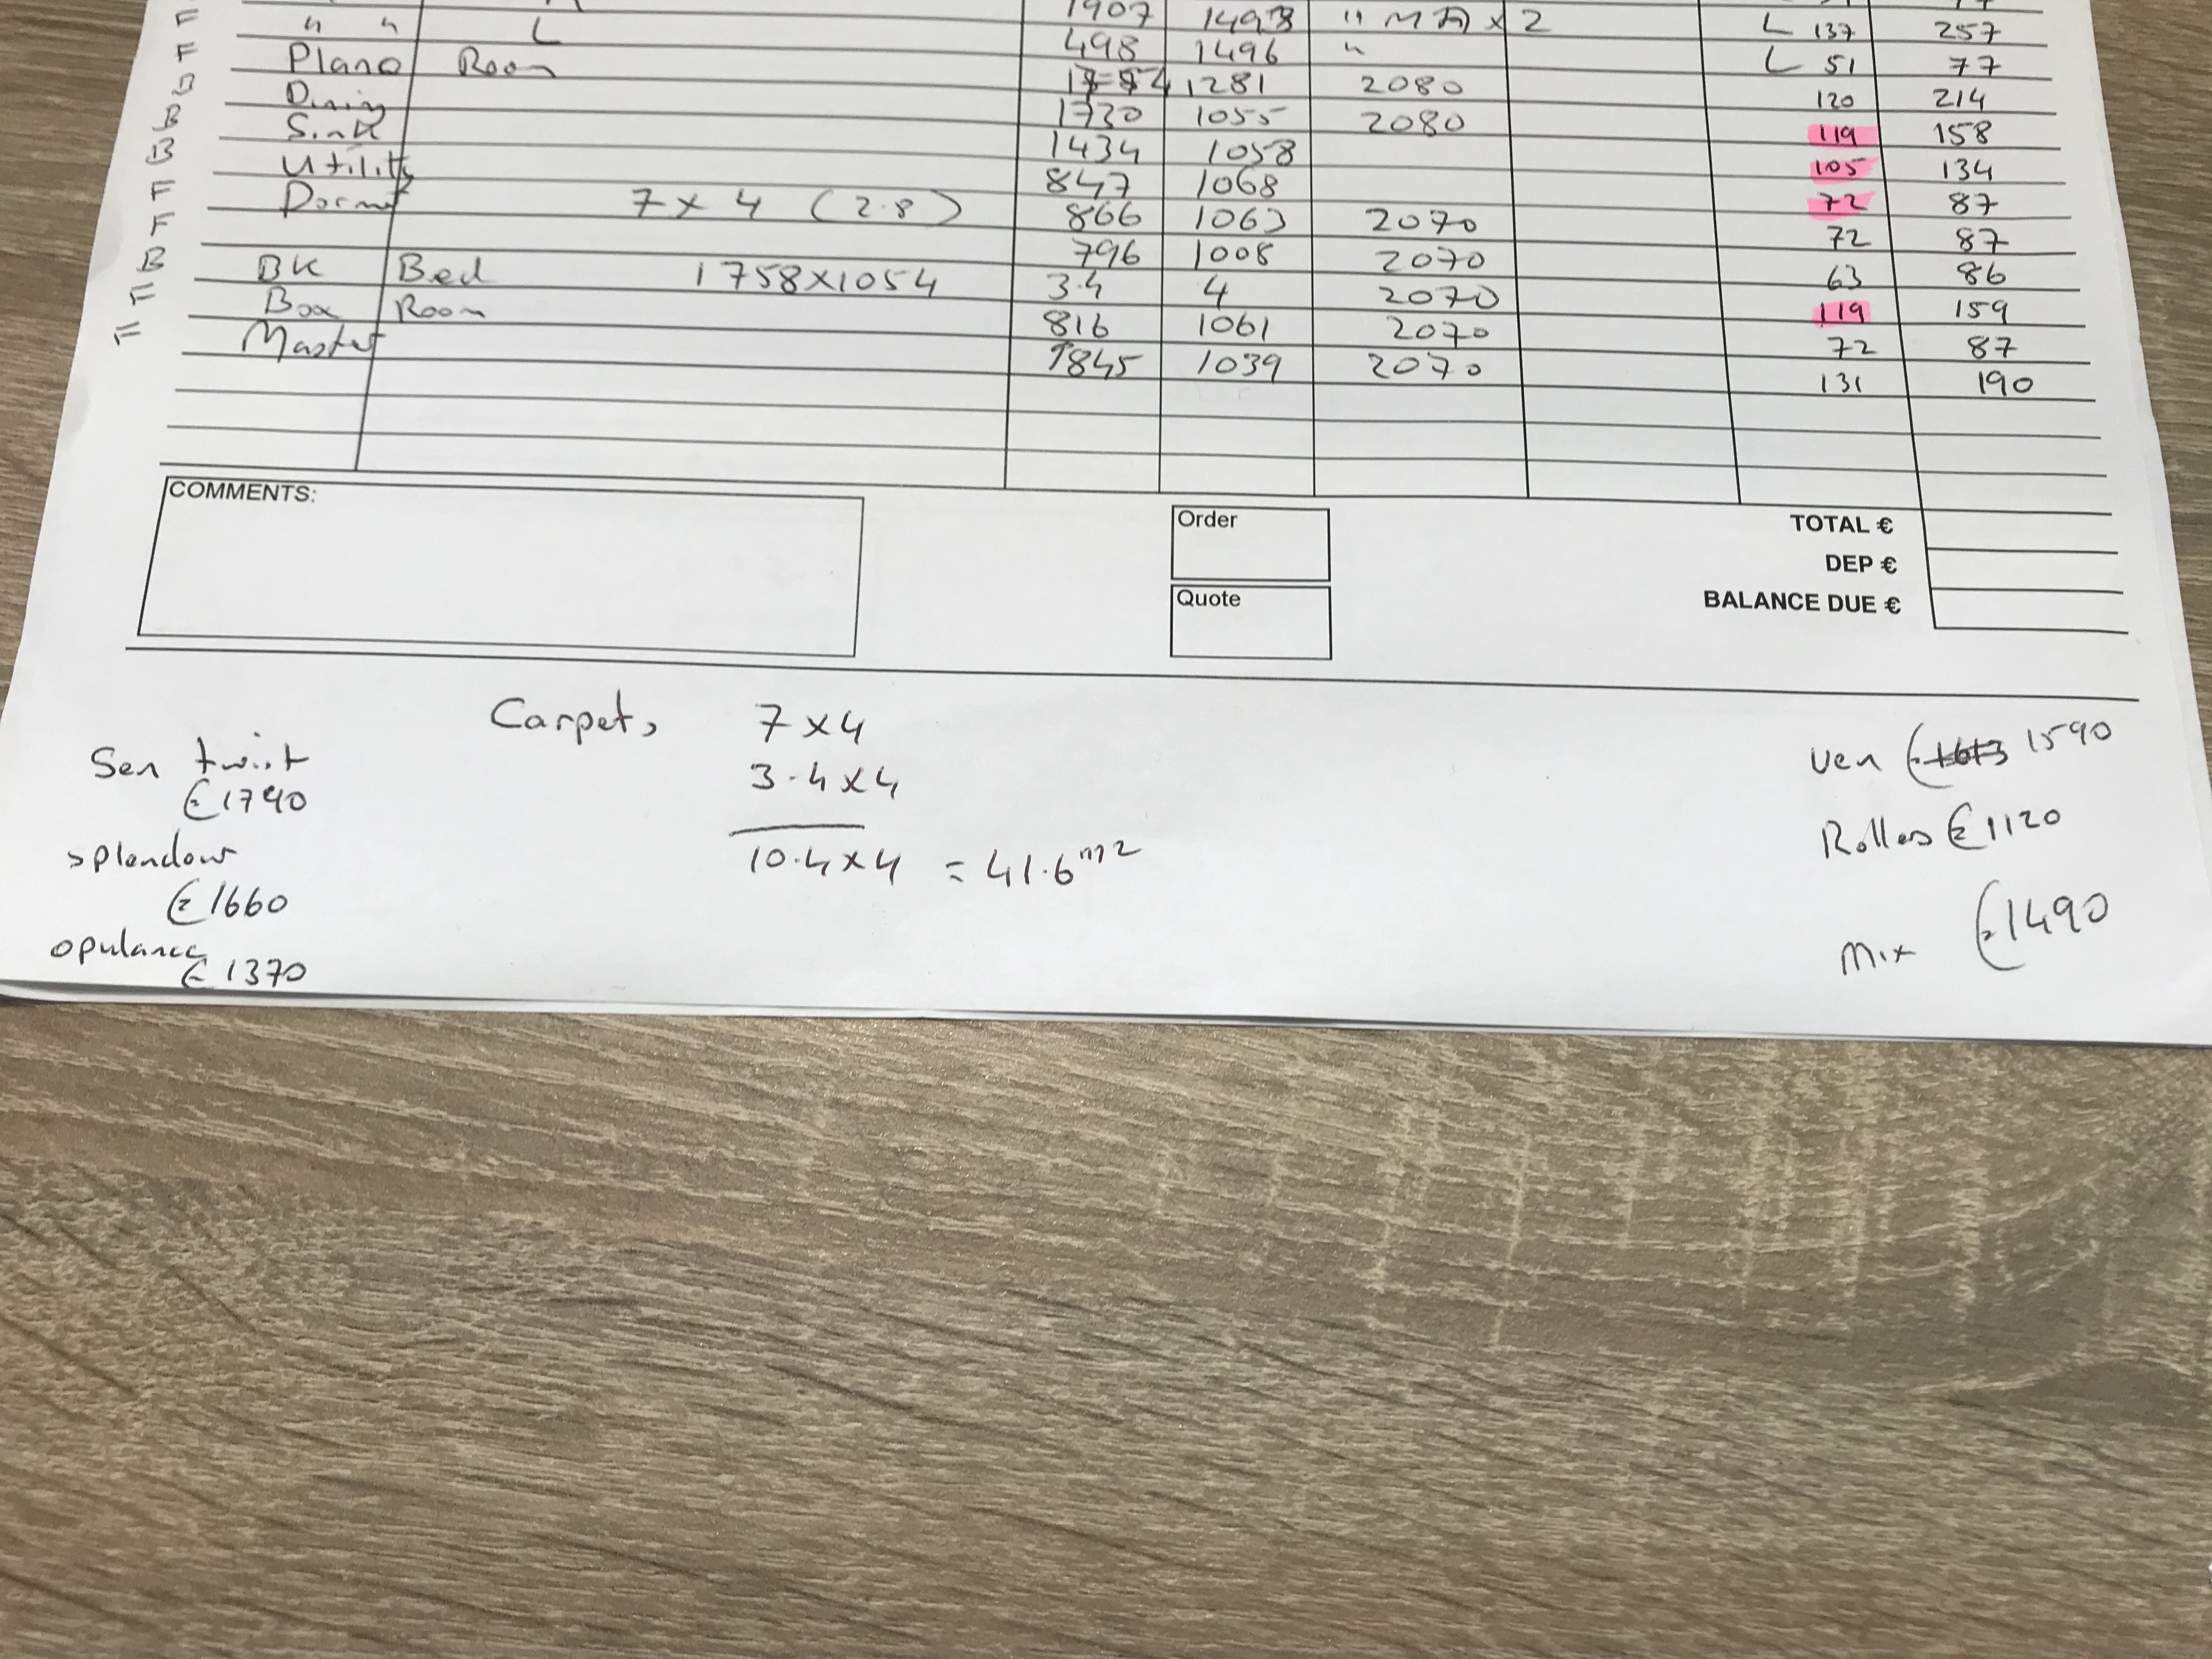 F " " L 1907 1493 " MA x 2 L 137 257
F Piano Room 498 1496 " L 51 77
Dining 1281 2080 120 214
B Sink 1730 1055 2080 119 158
B Utility 1434 1058 105 134
F Dormer 7 x 4 (2.8) 847 1068 72 87
F 866 1063 2070 72 87
B BK Bed 1758x1054 796 1008 2070 63 86
F Box Room 3.4 4 2070 119 159
F Master 816 1061 2070 72 87
1845 1039 2070 131 190
COMMENTS:
Order
Quote
TOTAL €
DEP €
BALANCE DUE €
Carpets 7 x 4
3.4 x 4
10.4 x 4 = 41.6 m2
Sen twist
€1790
splendour
€1660
opulance
€1370
Ven € 1613 1590
Rollers €1120
Mix €1490